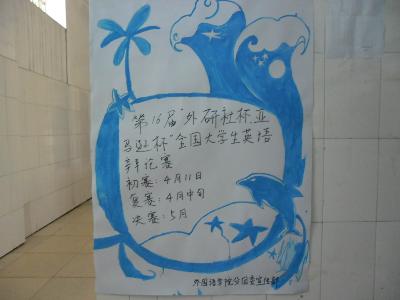 第16届“外研社杯亚
马逊杯”全国大学生英语
辩论赛
初赛：4月11日
复赛：4月中旬
决赛：5月
外国语学院分团委宣传部